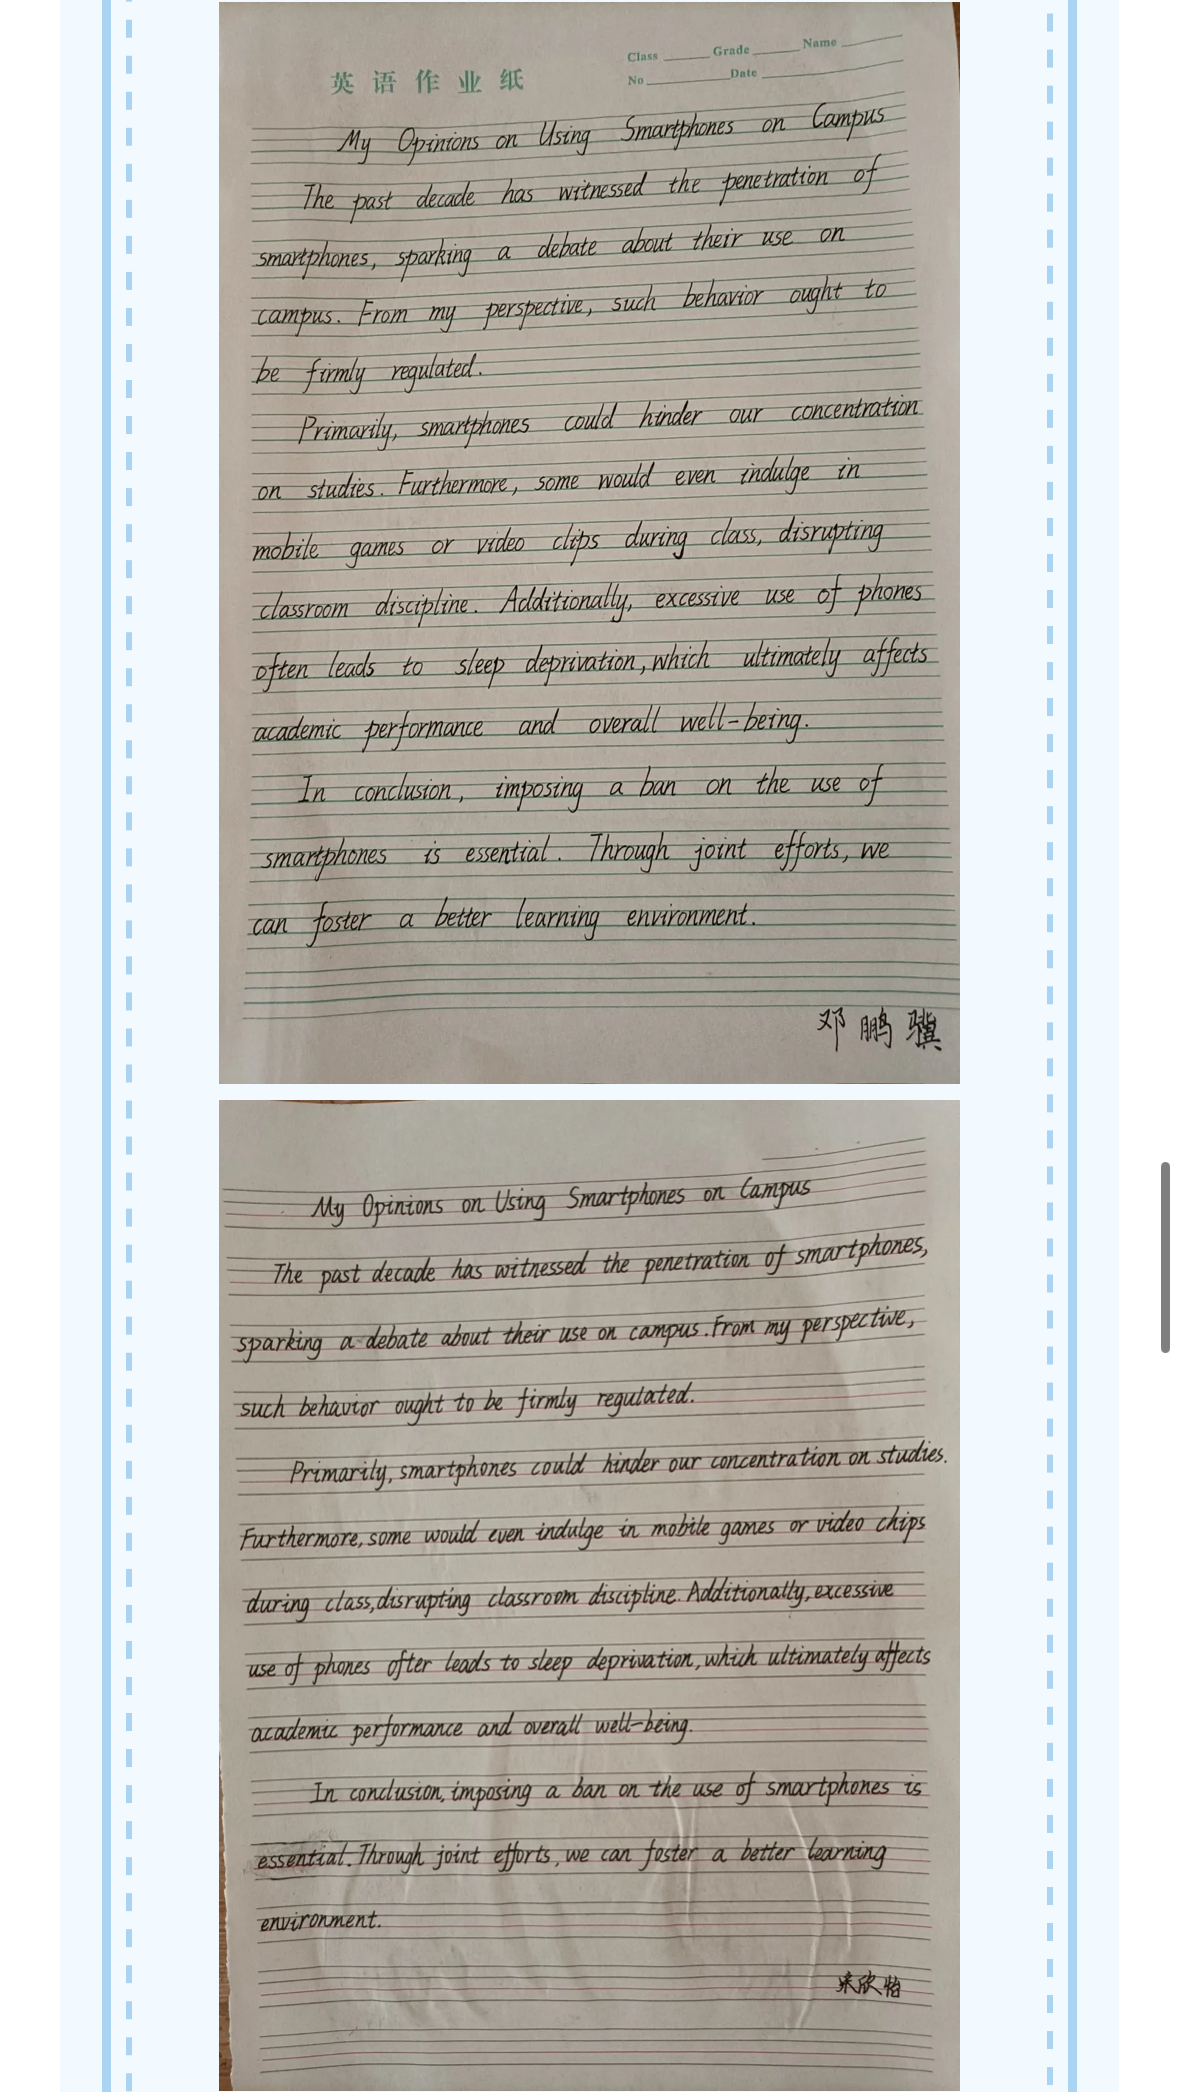 英语作业纸
Class Grade Name
No Date
My Opinions on Using Smartphones on Campus
The past decade has witnessed the penetration of
smartphones, sparking a debate about their use on
campus. From my perspective, such behavior ought to
be firmly regulated.
Primarily, smartphones could hinder our concentration
on studies. Furthermore, some would even indulge in
mobile games or video clips during class, disrupting
classroom discipline. Additionally, excessive use of phones
often leads to sleep deprivation, which ultimately affects
academic performance and overall well-being.
In conclusion, imposing a ban on the use of
smartphones is essential. Through joint efforts, we
can foster a better learning environment.
邓鹏骥
My Opinions on Using Smartphones on Campus
The past decade has witnessed the penetration of smartphones,
sparking a debate about their use on campus. From my perspective,
such behavior ought to be firmly regulated.
Primarily, smartphones could hinder our concentration on studies.
Furthermore, some would even indulge in mobile games or video chips
during class, disrupting classroom discipline. Additionally, excessive
use of phones ofter leads to sleep deprivation, which ultimately affects
academic performance and overall well-being.
In conclusion, imposing a ban on the use of smartphones is
essential. Through joint efforts, we can foster a better learning
environment.
欣怡